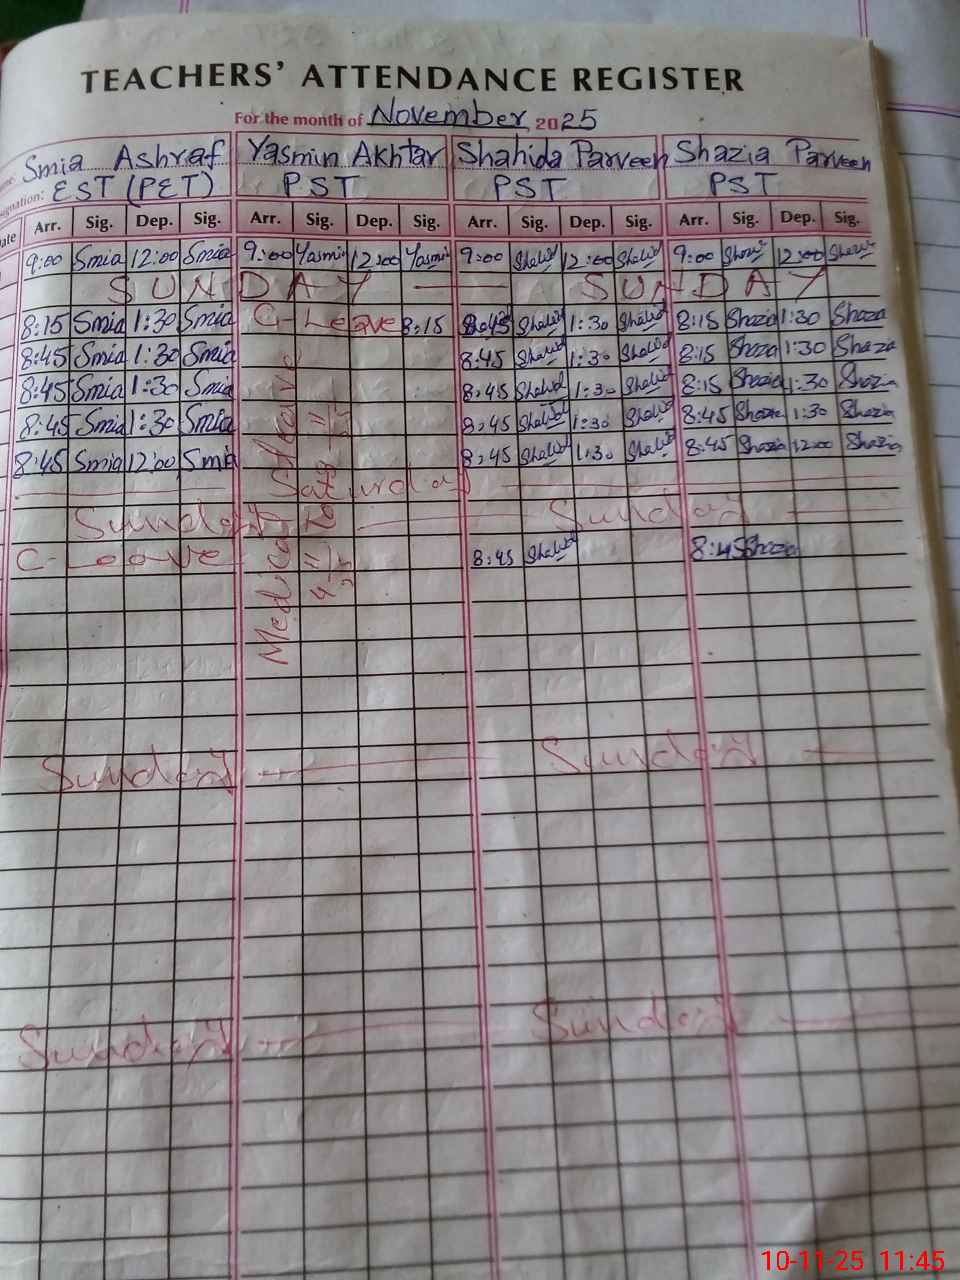 TEACHERS' ATTENDANCE REGISTER
For the month of November, 2025
Smia Ashraf Yasmin Akhtar Shahida Parveen Shazia Parveen
EST (PET) PST PST PST
Arr. Sig. Dep. Sig. Arr. Sig. Dep. Sig. Arr. Sig. Dep. Sig. Arr. Sig. Dep. Sig.
9:00 Smia 12:00 Smia 9:00 Yasmin 12:00 Yasmin 9:00 Shahid 12:00 Shahid 9:00 12:00
SUNDAY SUNDAY
8:15 Smia 1:30 Smia C-Leave 8:15 8:45 Shahid 1:30 Shahid 8:15 Shazia 1:30 Shazia
8:45 Smia 1:30 Smia 8:45 Shahid 1:30 Shahid 8:15 Shazia 1:30 Shazia
8:45 Smia 1:30 Smia 8:45 Shahid 1:30 Shahid 8:15 Shazia 1:30 Shazia
8:45 Smia 1:30 Smia 8:45 Shahid 1:30 Shahid 8:45 Shazia 1:30 Shazia
8:45 Smia 12:00 Smia 8:45 Shahid 1:30 Shahid 8:45 Shazia 12:00 Shazia
Saturday
Sunday Sunday
C-Leave 8:45 Shahid 8:45 Shazia
Medical
Sunday Sunday
Sunday Sunday
10-11-25 11:45